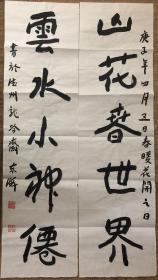 庚子年四月五日春暖花開之日
山花春世界
雲水小神僊
書於滄州龍吟齋 東海